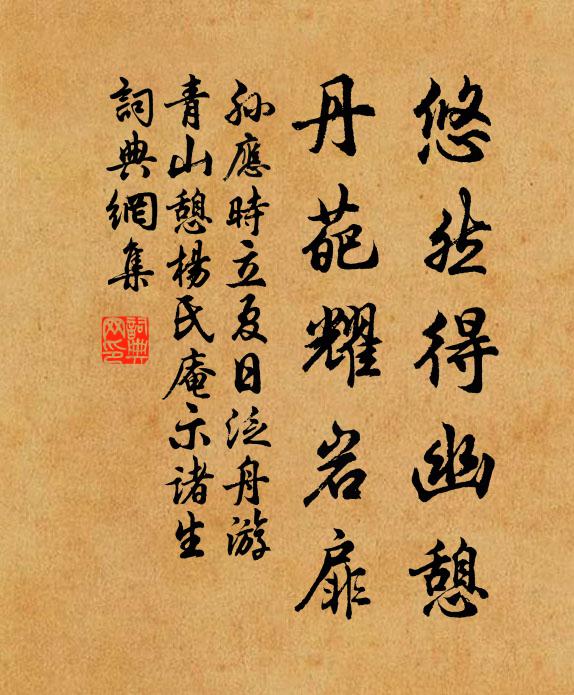 悠然得幽憩
丹葩耀岩扉
孙應時立夏日泛舟游
青山憩楊氏庵示诸生
詞典網集
詞典網印